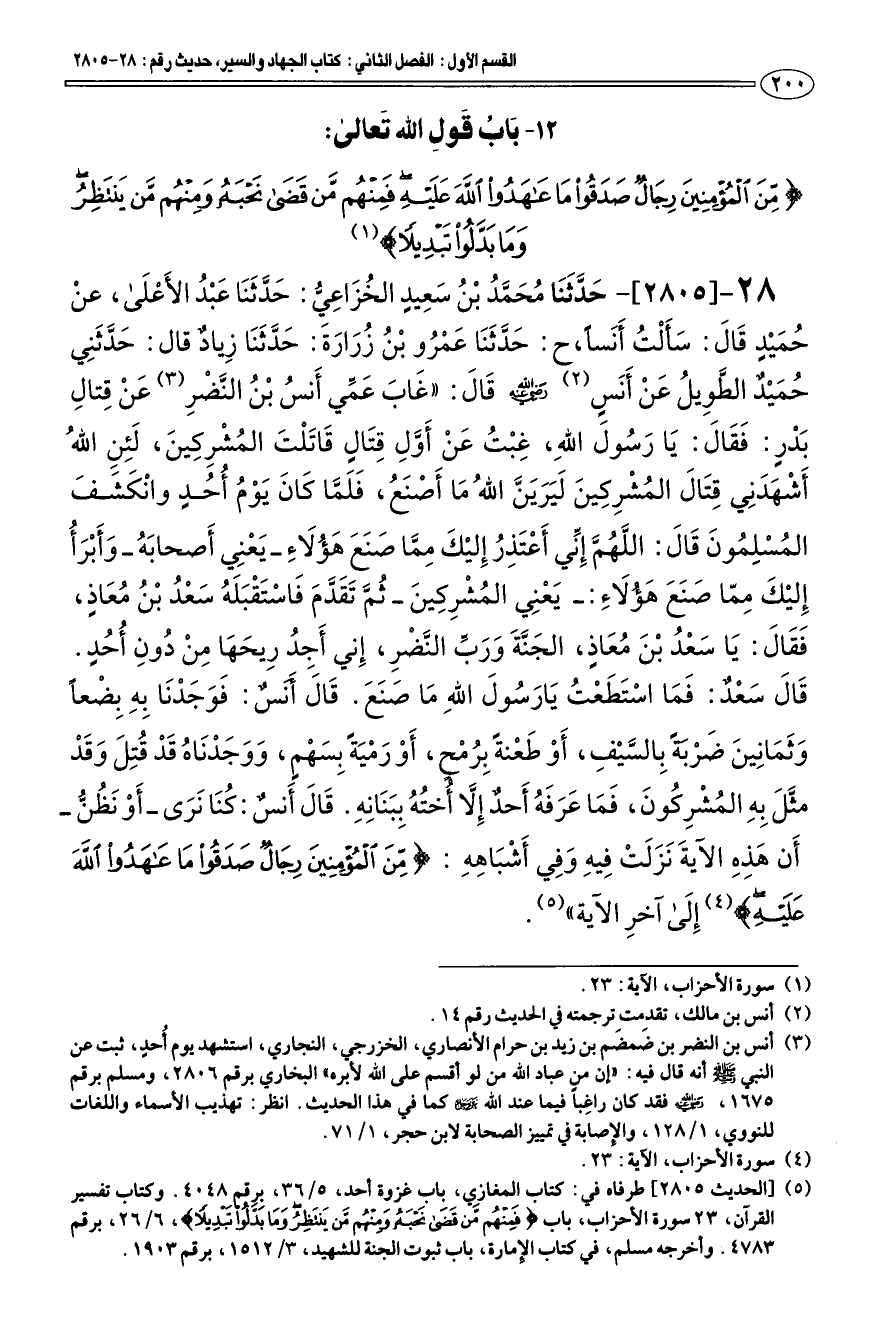 القسم الأول: الفصل الثاني: كتاب الجهاد والسير، حديث رقم: ٢٨-٢٨٠٥
٢٠٠
١٢- بَابُ قَولِ الله تَعالىٰ:
﴿ مِّنَ الْمُؤْمِنِينَ رِجَالٌ صَدَقُوا۟ مَا عَـٰهَدُوا۟ اللَّهَ عَلَيْهِ ۖ فَمِنْهُم مَّن قَضَىٰ نَحْبَهُۥ وَمِنْهُم مَّن يَنتَظِرُ ۖ
وَمَا بَدَّلُوا۟ تَبْدِيلًا﴾(١)
٢٨-[٢٨٠٥]- حَدَّثَنَا مُحَمَّدُ بْنُ سَعِيدٍ الخُزَاعِيُّ: حَدَّثَنَا عَبْدُ الأَعْلَىٰ، عنْ
حُمَيْدٍ قَالَ: سَأَلْتُ أَنَساً،ح: حَدَّثَنَا عَمْرُو بْنُ زُرَارَةَ: حَدَّثَنَا زِيادٌ قال: حَدَّثَنِي
حُمَيْدٌ الطَّوِيلُ عَنْ أَنَسٍ(٢) رضي الله عنه قَالَ: «غَابَ عَمِّي أَنسُ بْنُ النَّضْرِ(٣) عَنْ قِتالِ
بَدْرٍ: فَقَالَ: يَا رَسُولَ اللهِ، غِبْتُ عَنْ أَوَّلِ قِتَالٍ قَاتَلْتَ المُشْرِكِينَ، لَئِنِ اللهُ
أَشْهَدَنِي قِتَالَ المُشْرِكِينَ لَيَرَيَنَّ اللهُ مَا أَصْنَعُ، فَلَمَّا كَانَ يَوْمُ أُحُدٍ وانْكَشَفَ
المُسْلِمُونَ قَالَ: اللَّهُمَّ إِنِّي أَعْتَذِرُ إِلَيْكَ مِمَّا صَنَعَ هَؤُلَاءِ ـ يَعْنِي أَصحابَهُ ـ وَأَبْرَأُ
إِلَيْكَ مِمّا صَنَعَ هَؤُلَاءِ: ـ يَعْنِي المُشْرِكِينَ ـ ثُمَّ تَقَدَّمَ فَاسْتَقْبَلَهُ سَعْدُ بْنُ مُعَاذٍ،
فَقَالَ: يَا سَعْدُ بْنَ مُعَاذٍ، الجَنَّةَ وَرَبِّ النَّضْرِ، إني أَجِدُ رِيحَهَا مِنْ دُونِ أُحُدٍ.
قَالَ سَعْدٌ: فَمَا اسْتَطَعْتُ يَارَسُولَ اللهِ مَا صَنَعَ. قَالَ أَنَسٌ: فَوَجَدْنَا بِهِ بِضْعاً
وَثَمَانِينَ ضَرْبَةً بِالسَّيْفِ، أَوْ طَعْنةً بِرُمْحٍ، أَوْ رَمْيَةً بِسَهْمٍ، وَوَجَدْنَاهُ قَدْ قُتِلَ وَقَدْ
مثَّلَ بِهِ المُشْرِكُونَ، فَمَا عَرَفَهُ أَحدٌ إِلَّا أُختُهُ بِبَنَانِهِ. قَالَ أَنسٌ: كُنَّا نَرَى ـ أَوْ نَظُنُّ ـ
أَن هَذِهِ الآيةَ نَزَلَتْ فِيهِ وَفِي أَشْبَاهِهِ : ﴿ مِّنَ الْمُؤْمِنِينَ رِجَالٌ صَدَقُوا۟ مَا عَـٰهَدُوا۟ اللَّهَ
عَلَيْهِ ۖ﴾(٤) إِلَىٰ آخرِ الآية»(٥).
(١) سورة الأحزاب، الآية: ٢٣.
(٢) أنس بن مالك، تقدمت ترجمته في الحديث رقم ١٤.
(٣) أنس بن النضر بن ضَمضَم بن زيد بن حرام الأنصاري، الخزرجي، النجاري، استشهد يوم أُحدٍ، ثبت عن
النبي ﷺ أنه قال فيه: «إن من عباد الله من لو أقسم على الله لأبره» البخاري برقم ٢٨٠٦، ومسلم برقم
١٦٧٥، رضي الله عنه فقد كان راغباً فيما عند الله عز وجل كما في هذا الحديث. انظر: تهذيب الأسماء واللغات
للنووي، ١/ ١٢٨، والإصابة في تمييز الصحابة لابن حجر، ١/ ٧١.
(٤) سورة الأحزاب، الآية: ٢٣.
(٥) [الحديث ٢٨٠٥] طرفاه في: كتاب المغازي، باب غزوة أحد، ٥/ ٣٦، برقم ٤٠٤٨. وكتاب تفسير
القرآن، ٢٣ سورة الأحزاب، باب ﴿ فَمِنْهُم مَّن قَضَىٰ نَحْبَهُۥ وَمِنْهُم مَّن يَنتَظِرُ ۖ وَمَا بَدَّلُوا۟ تَبْدِيلًا﴾، ٦/ ٢٦، برقم
٤٧٨٣. وأخرجه مسلم، في كتاب الإمارة، باب ثبوت الجنة للشهيد، ٣/ ١٥١٢، برقم ١٩٠٣.